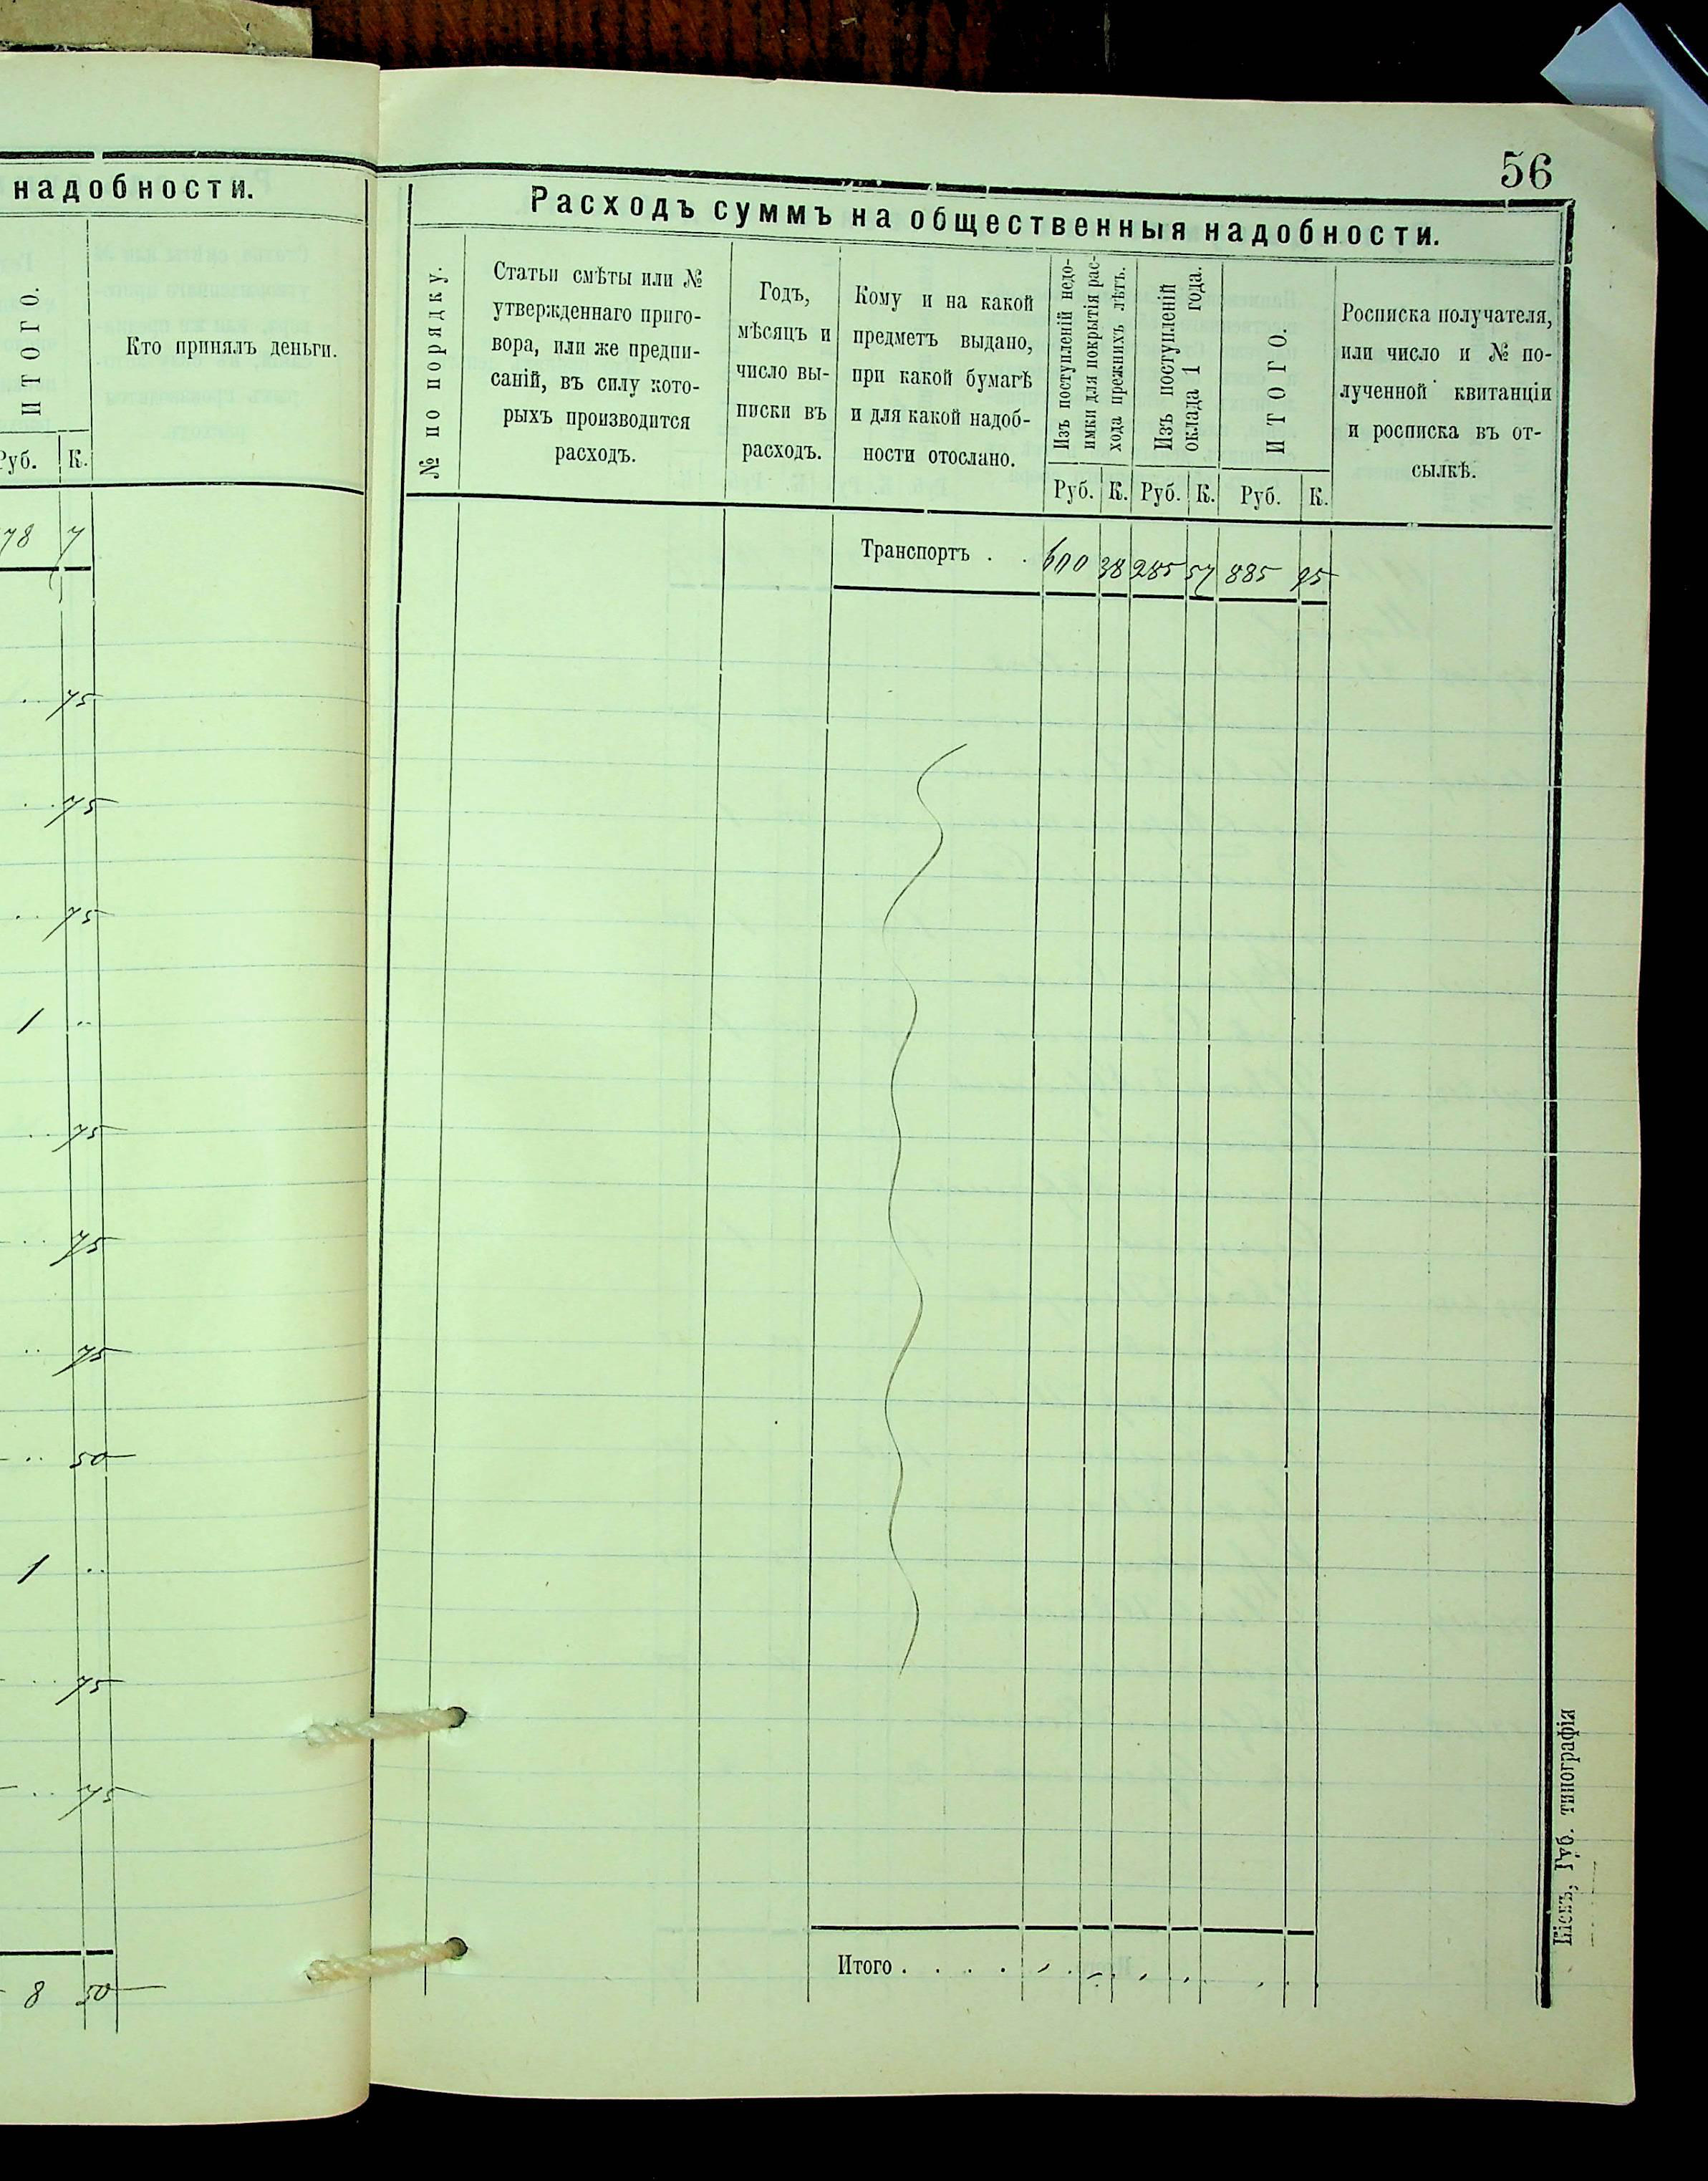 надобности.
ИТОГО.
Кто принялъ деньги.
Руб. К.
78 7
75
75
75
1 ..
75
75
75
50
1 ..
75
75
8 50
56
Расходъ суммъ на общественныя надобности.
№ по порядку.
Статьи смѣты или №
утвержденнаго приго-
вора, или же предпи-
саній, въ силу кото-
рыхъ производится
расходъ.
Годъ,
мѣсяцъ и
число вы-
писки въ
расходъ.
Кому и на какой
предметъ выдано,
при какой бумагѣ
и для какой надоб-
ности отослано.
Изъ поступленій недо-
имки для покрытія рас-
хода прежнихъ лѣтъ.
Изъ поступленій
оклада 1 года.
ИТОГО.
Росписка получателя,
или число и № по-
лученной квитанціи
и росписка въ от-
сылкѣ.
Руб. К. Руб. К. Руб. К.
Транспортъ . . 600 38 285 57 885 95
Итого . . . . .
Губ. типографія